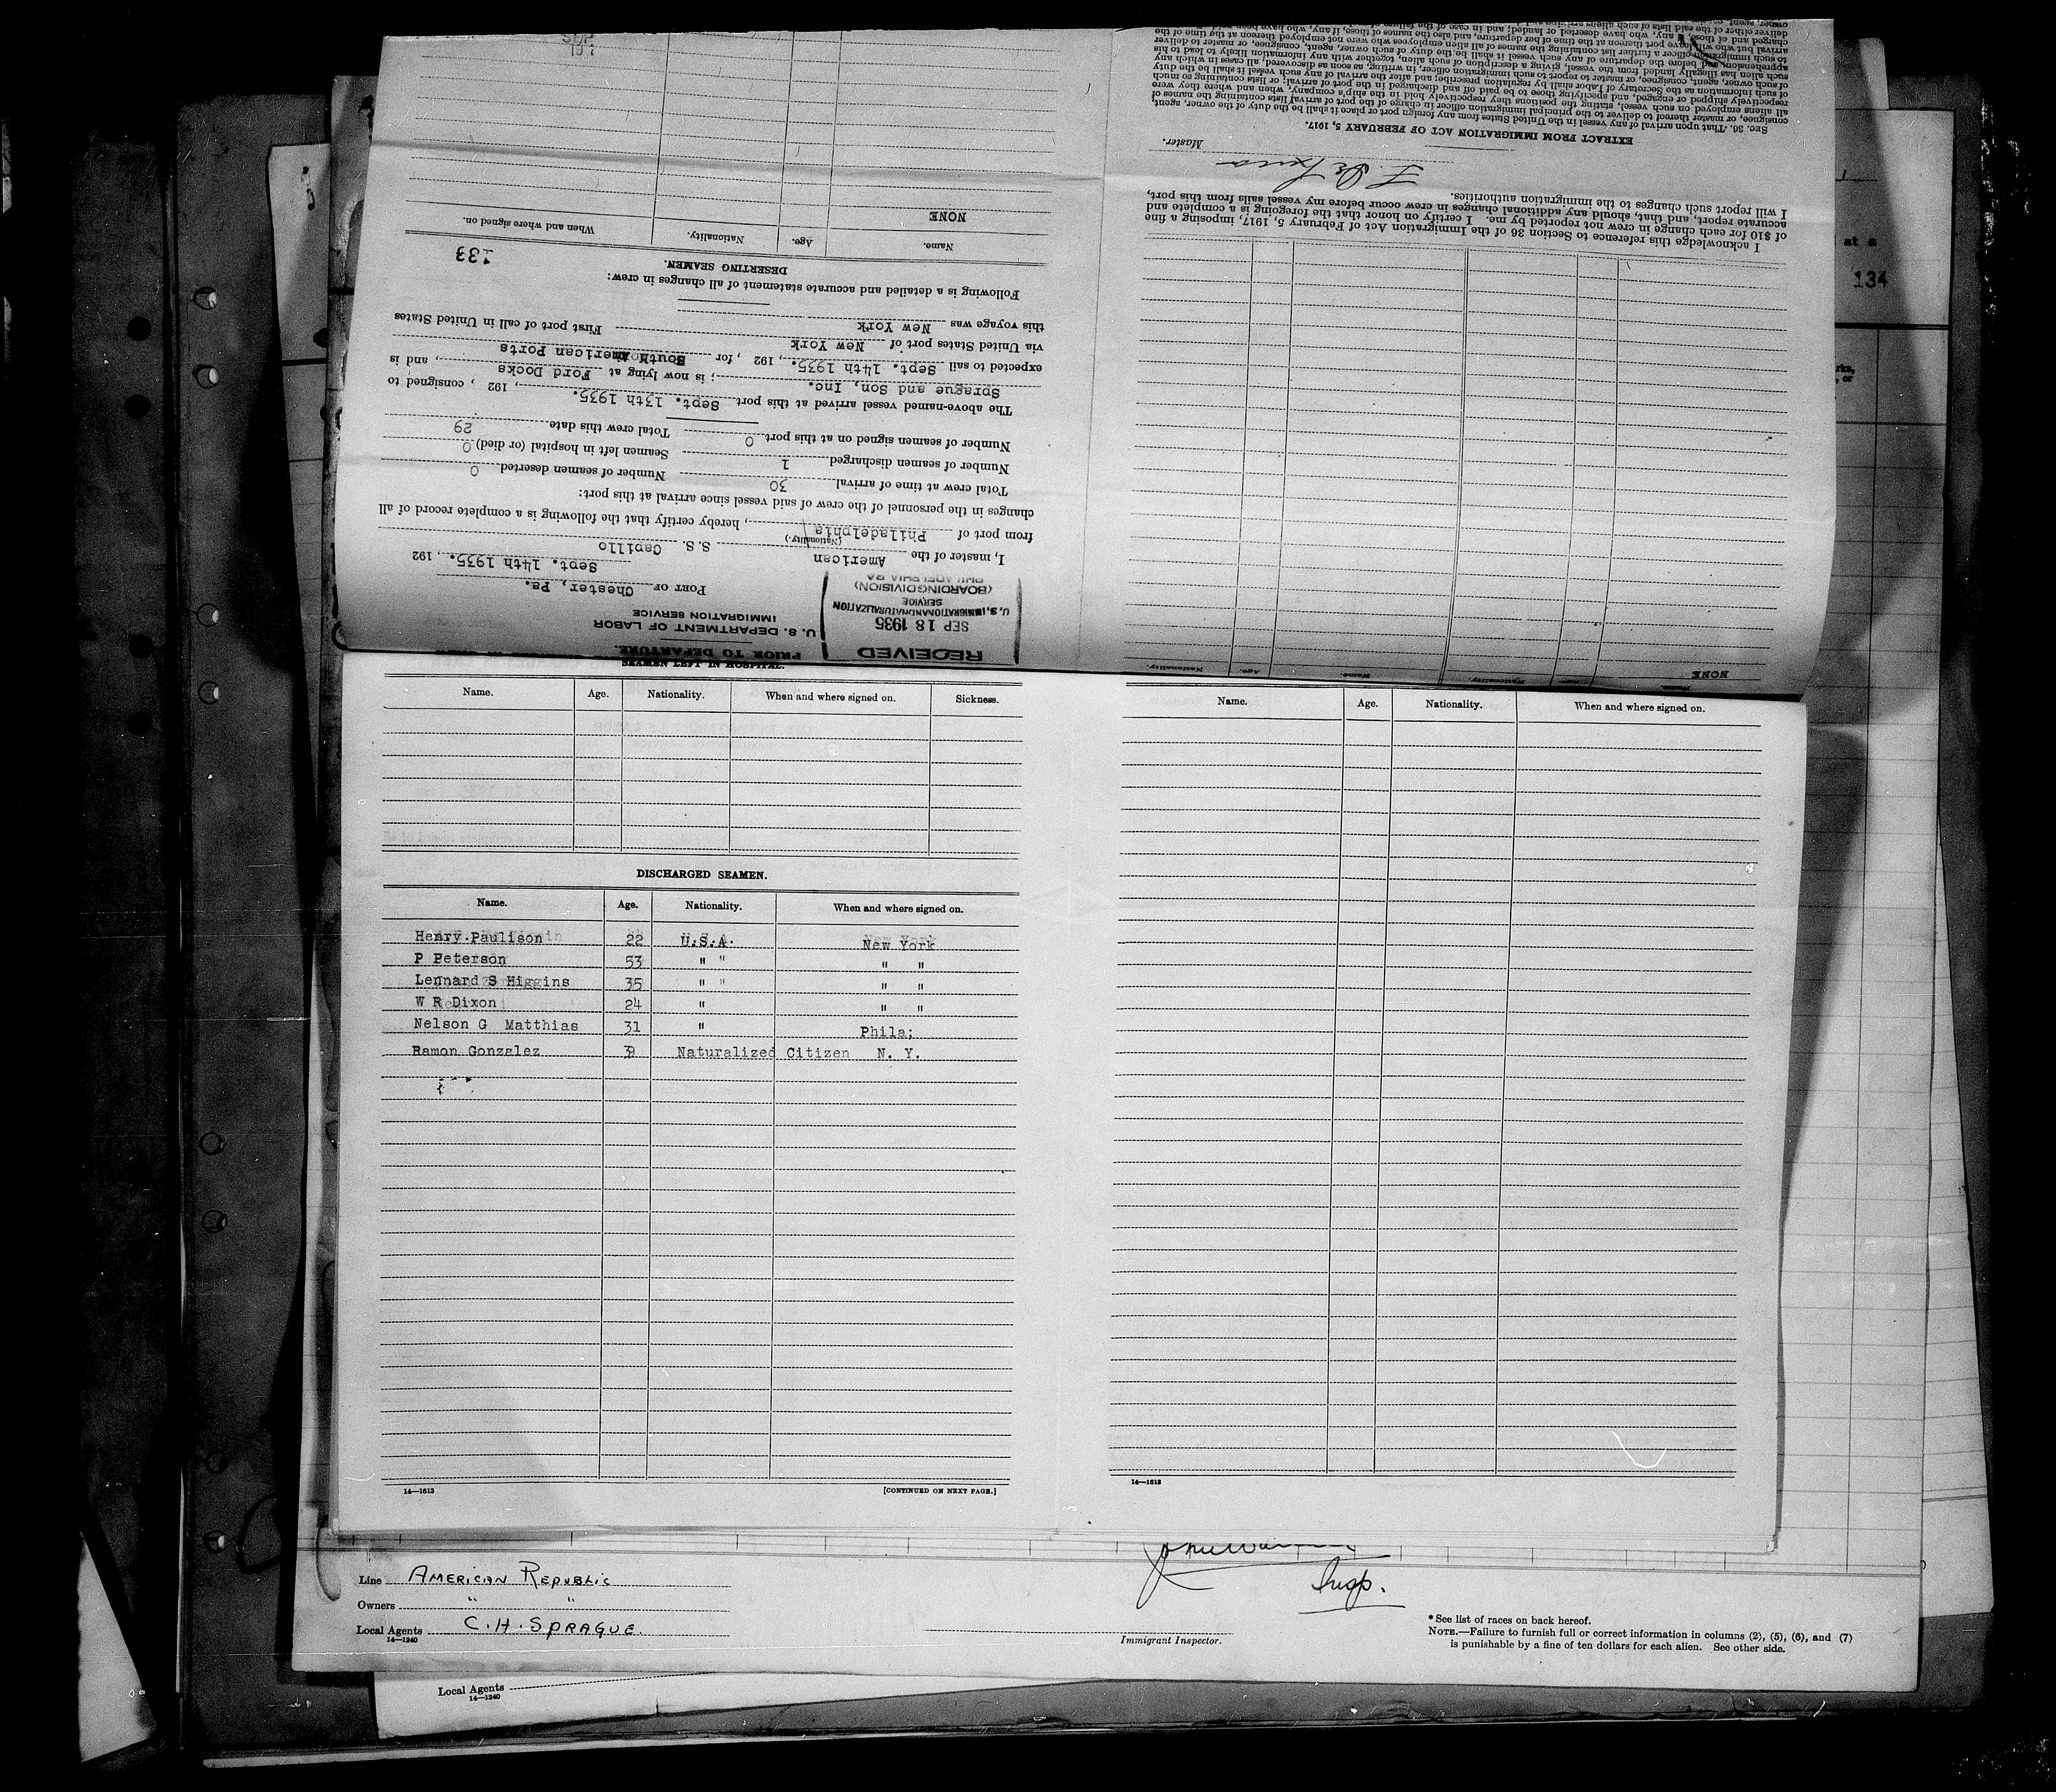 SEAMEN LEFT IN HOSPITAL.
Name. Age. Nationality. When and where signed on. Sickness.
DISCHARGED SEAMEN.
Name. Age. Nationality. When and where signed on.
Henry Paulison 22 U.S.A. New York
P Peterson 53 " " " "
Lennard S Higgins 35 " " " "
W R Dixon 24 " " "
Nelson G Matthias 31 " Phila;
Ramon Gonzalez 39 Naturalized Citizen N. Y.
14—1613 [CONTINUED ON NEXT PAGE.]
Name. Age. Nationality. When and where signed on.
14—1613
PRIOR TO DEPARTURE.
U. S. DEPARTMENT OF LABOR
IMMIGRATION SERVICE
RECEIVED
SEP 18 1935
U.S. IMMIGRATION AND NATURALIZATION
SERVICE
(BOARDING DIVISION)
PHILADELPHIA PA
PORT OF Chester, Pa.
Sept. 14th 1935., 192
I, master of the American S. S. Capillo
(Nationality.)
from port of Philadelphia, hereby certify that the following is a complete record of all
changes in the personnel of the crew of said vessel since arrival at this port:
Total crew at time of arrival 30 Number of seamen deserted 0
Number of seamen discharged 1 Seamen left in hospital (or died) 0
Number of seamen signed on at this port 0 Total crew this date 29
The above-named vessel arrived at this port Sept. 13th 1935., 192 , consigned to
Sprague and Son, Inc.; is now lying at Ford Docks, and is
expected to sail Sept. 14th 1935., 192 , for South American Ports
via United States port of New York
this voyage was New York First port of call in United States
Following is a detailed and accurate statement of all changes in crew:
DESERTING SEAMEN.
133
Name. Age. Nationality. When and where signed on.
NONE
SEP
Name. Age. Nationality.
NONE
I acknowledge this reference to Section 36 of the Immigration Act of February 5, 1917, imposing a fine
of $10 for each change in crew not reported by me. I certify on honor that the foregoing is a complete and
accurate report, and that, should any additional changes in crew occur before my vessel sails from this port,
I will report such changes to the immigration authorities.
Master.
EXTRACT FROM IMMIGRATION ACT OF FEBRUARY 5, 1917.
SEC. 36. That upon arrival of any vessel in the United States from any foreign port or place it shall be the duty of the owner, agent,
consignee, or master thereof to deliver to the principal immigration officer in charge of the port of arrival lists containing the names of
all aliens employed on such vessel, stating the positions they respectively hold in the ship's company, when and where they were
respectively shipped or engaged, and specifying those to be paid off and discharged in the port of arrival; or lists containing so much
of such information as the Secretary of Labor shall by regulation prescribe; and after the arrival of any such vessel it shall be the duty
of such owner, agent, consignee, or master to report to such immigration officer, in writing, as soon as discovered, all cases in which any
such alien has illegally landed from the vessel, giving a description of such alien, together with any information likely to lead to his
apprehension; and before the departure of any such vessel it shall be the duty of such owner, agent, consignee, or master to deliver
to such immigration officer a further list containing the names of all alien employees who were not employed thereon at the time of the
arrival but who will leave port thereon at the time of her departure, and also the names of those, if any, who have been paid off and
at a
134
Line AMERICAN REPUBLIC
Owners " "
Local Agents C. H. SPRAGUE.
14—1240
Insp.
Immigrant Inspector.
* See list of races on back hereof.
NOTE.—Failure to furnish full or correct information in columns (2), (5), (6), and (7)
is punishable by a fine of ten dollars for each alien. See other side.
Local Agents
14—1240